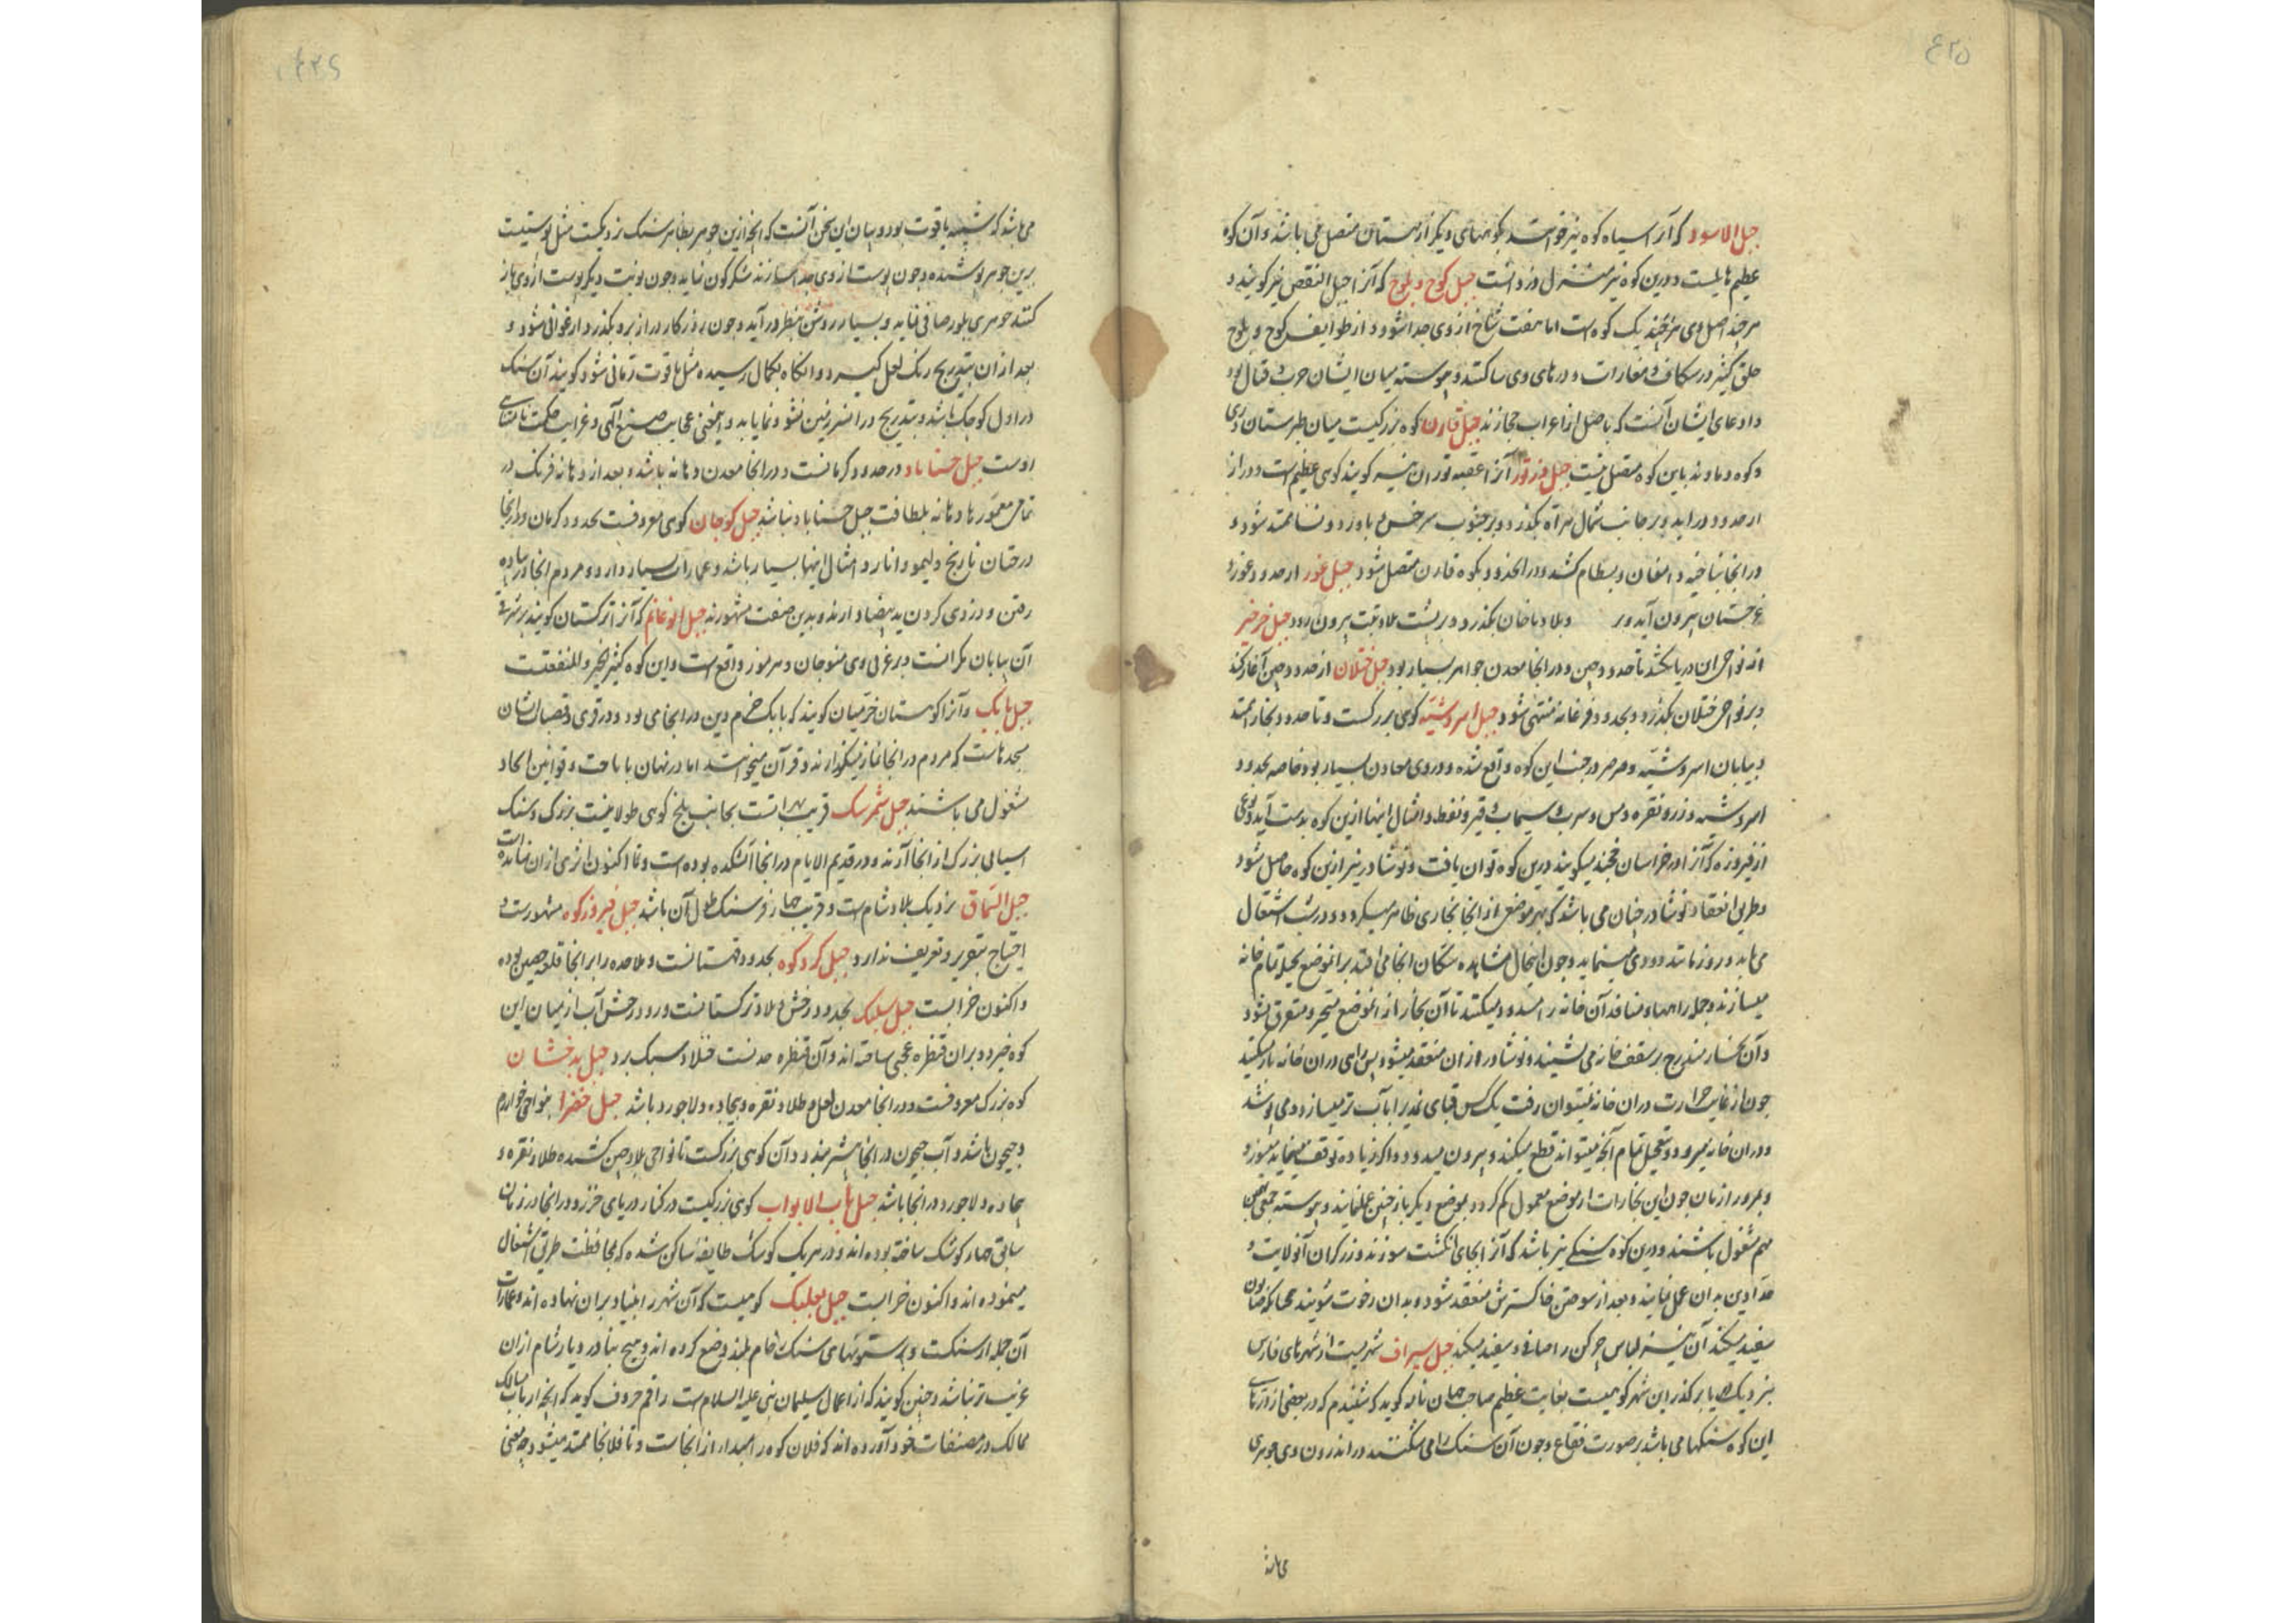 ۴۲۵
جبل الاسود که آنرا سیاه کوه نیز خوانند بکوههای دیگر از هستان متصل می باشد و آن کوه
عظیم هایلست و درین کوه نیز منزل دزدانست جبل کوج و بلوج که آنرا جبل القفص نیز کویند و
هر چند اصل وی هر چند یک کوهست اما هفت شاخ از وی جدا شود و از طوایف کوج و بلوج
خلق کثیر در شکاف و مغارات و درهای وی ساکنند و پیوسته میان ایشان حرب و قتال بود
و ادعای ایشان آنست که باصل از اعراب حجازند جبل قارن کوه بزرکیست میان طبرستان و ری
و کوه دماوند باین کوه متصل نیست جبل آنرا عقبه نیز کویند کوهی عظیم است و دراز
از حدود در آید و بر جانب شمال هراة بکذرد و بر جنوب سرخس و باورد و نسا ممتد شود و
در انجا شاخی بدامغان و بسطام کشد و در انحدود بکوه قارن متصل شود جبل غور از حدود غور و
غرجستان بیرون آید و بر و بلاد بکذرد و بر پشت بلاد تبت بیرون رود جبل خرخیز
از نواحی ان دریا کشد تا حدود چین و در انجا معدن جواهر بسیار بود جبل ختلان از حدود چین آغاز کند
و بر نواحی ختلان بکذرد و بحدود فرغانه منتهی شود جبل اسروشنه کوهی بزرکست و تا حدود بخارا ممتد
و بیابان اسروشنه و در جنب این کوه واقع شده و در وی معادن بسیار بود خاصه بحدود
اسروشنه و زر و نقره و مس و سرب و سیماب و قیر و نفط و امثال اینها ازین کوه بدست آید و نوعی
از فیروزه که آنرا در خراسان خجند میکویند درین کوه توان یافت و نوشادر نیز ازین کوه حاصل شود
و طریق انعقاد نوشادر چنان می باشد که بهر موضع از انجا بخاری ظاهر میکردد و در شب اشتعال
می یابد و روز مانند دودی مینماید و چون اینحال مشاهده سکان انجا می افتد بر انموضع بحیل تمام خانه
میسازند و جمله راهها و منافذ آن خانه را مسدود میکنند تا آن بخار از انموضع متحیر و متفرق نشود
و آن بخار بتدریج بر سقف خانه می نشیند و نوشادر از ان منعقد میشود پس راهی در ان خانه باز میکنند
چون از غایت حرارت در ان خانه نمیتوان رفت یک کس قبای نمدی را بآب تر میسازد و می پوشد
و در ان خانه میرود و بتعجیل تمام آنچه میتواند قطع میکند و بیرون میدود و اکر زیاده توقف مینماید میسوزد
و بمرور ازمان چون این بخارات از موضع معمول کم کردد بموضع دیکر باز چنین عمل نمایند و پیوسته جمعی باین
مهم مشغول باشند و درین کوه سنکی نیز باشد که آنرا بجای انکشت سوزند و زرکران آنولایت و
حدادین بدان عمل نمایند و بعد از سوختن خاکسترش منعقد شود و بدان رخوت شویند همچنانکه صابون
سفید میکند آن نیز لباس چرکن را صافی و سفید میکند جبل سیراف شهریست از شهرهای فارس
بنزدیک دریا بر کذر این شهر کوهیست بغایت عظیم صاحب جهان نامه کوید که شنیدم که در بعضی از
این کوه سنکها می باشد بر صورت فقاع و چون آن سنک را می شکنند در اندرون وی جوهری
می باشد
۴۲۶
می باشد که شبیه یاقوت بود و بیان این سخن آنست که انچه ازین جوهر بظاهر سنک نزدیکست مثل پوستیست
برین جوهر پوشیده و چون پوست از وی جدا سازند شکر کون نماید و چون نوبت دیکر پوست از وی باز
کنند جوهری بلور صافی نماید و بسیار روشن بنظر در آید و چون روزکار دراز برو بکذرد ارغوانی شود و
بعد از ان بتدریج رنک لعل کیرد و انکاه بکمال رسیده مثل یاقوت رمانی شود کویند آن سنک
در اول کوچک باشد و بتدریج در انسرزمین نشو و نما یابد و اینمعنی عجایب صنع الهی و غرایب حکمت نامتناهی
اوست جبل در حدود کرمانست و در انجا معدن باشد و بعد از
تمامی معمورها بلطافت جبل نباشد جبل کوهی معروفست بحدود کرمان و در انجا
درختان نارنج و لیمو و انار و امثال اینها بسیار باشد و عمارات بسیار دارد و مردم انجا در پیاده
رفتن و دزدی کردن ید بیضا دارند و بدین صفت مشهورند جبل ابو غانم که آنرا ترکستان کویند بر شرقی
آن بیابان مکرانست و بر غربی وی منوجان و هرموز واقع است و این کوه کثیر الخیر و المنفعتست
جبل بابک و آنرا کوهستان خرمیان کویند که بابک خرم دین در انجا می بود و در قری و قصبات ایشان
مسجدهاست که مردم در انجا نماز میکذارند و قرآن میخوانند اما در نهان باباحت و قوانین الحاد
مشغول می باشند جبل قریب بهراتست بجانب بلخ کوهی طولانیست بزرک و سنک
آسیای بزرک از انجا آرند و در قدیم الایام در انجا آتشکده بوده است و تا اکنون اثری از ان نمانده است
جبل السماق نزدیک بلاد شام است و قریب چهار فرسنک طول آن باشد جبل فیروزکوه مشهورست و
احتیاج بتقریر و تعریف ندارد جبل کردکوه بحدود قهستانست و ملاحده را بر انجا قلعه حصین بوده
و اکنون خرابست جبل بحدود بلاد ترکستانست و رود آب از میان این
کوه خیزد و بر ان قنطره عجبی ساخته اند و آن قنطره جبل بدخشان
کوه بزرک معروفست و در انجا معدن لعل و طلا و نقره و بیجاده و لاجورد باشد جبل خضرا بنواحی خوارزم
و جیحون باشد و آب جیحون در انجا و آن کوهی بزرکست تا نواحی بلاد چین کشیده طلا و نقره و
بیجاده و لاجورد در انجا باشد جبل باب الابواب کوهی بزرکیست در کنار دریای خزر و در انجا در زمان
سابق چهار کوشک ساخته بوده اند و در هر یک کوشک طایفه ساکن شده که بمحافظت طریق اشتغال
مینموده اند و اکنون خرابست جبل بعلبک کوهیست که آن شهر را بنیاد بر ان نهاده اند و عمارات
آن جمله از سنکست و بر ستونهای سنک رخام بلند وضع کرده اند و هیچ بنا در دیار شام از ان
غریب تر نباشد و چنین کویند که از اعمال سلیمان نبی علیه السلام است راقم حروف کوید که انچه ارباب مسالک
ممالک در مصنفات خود آورده اند که فلان کوه را مبدا از انجاست و تا فلان جا ممتد میشود چه معنی